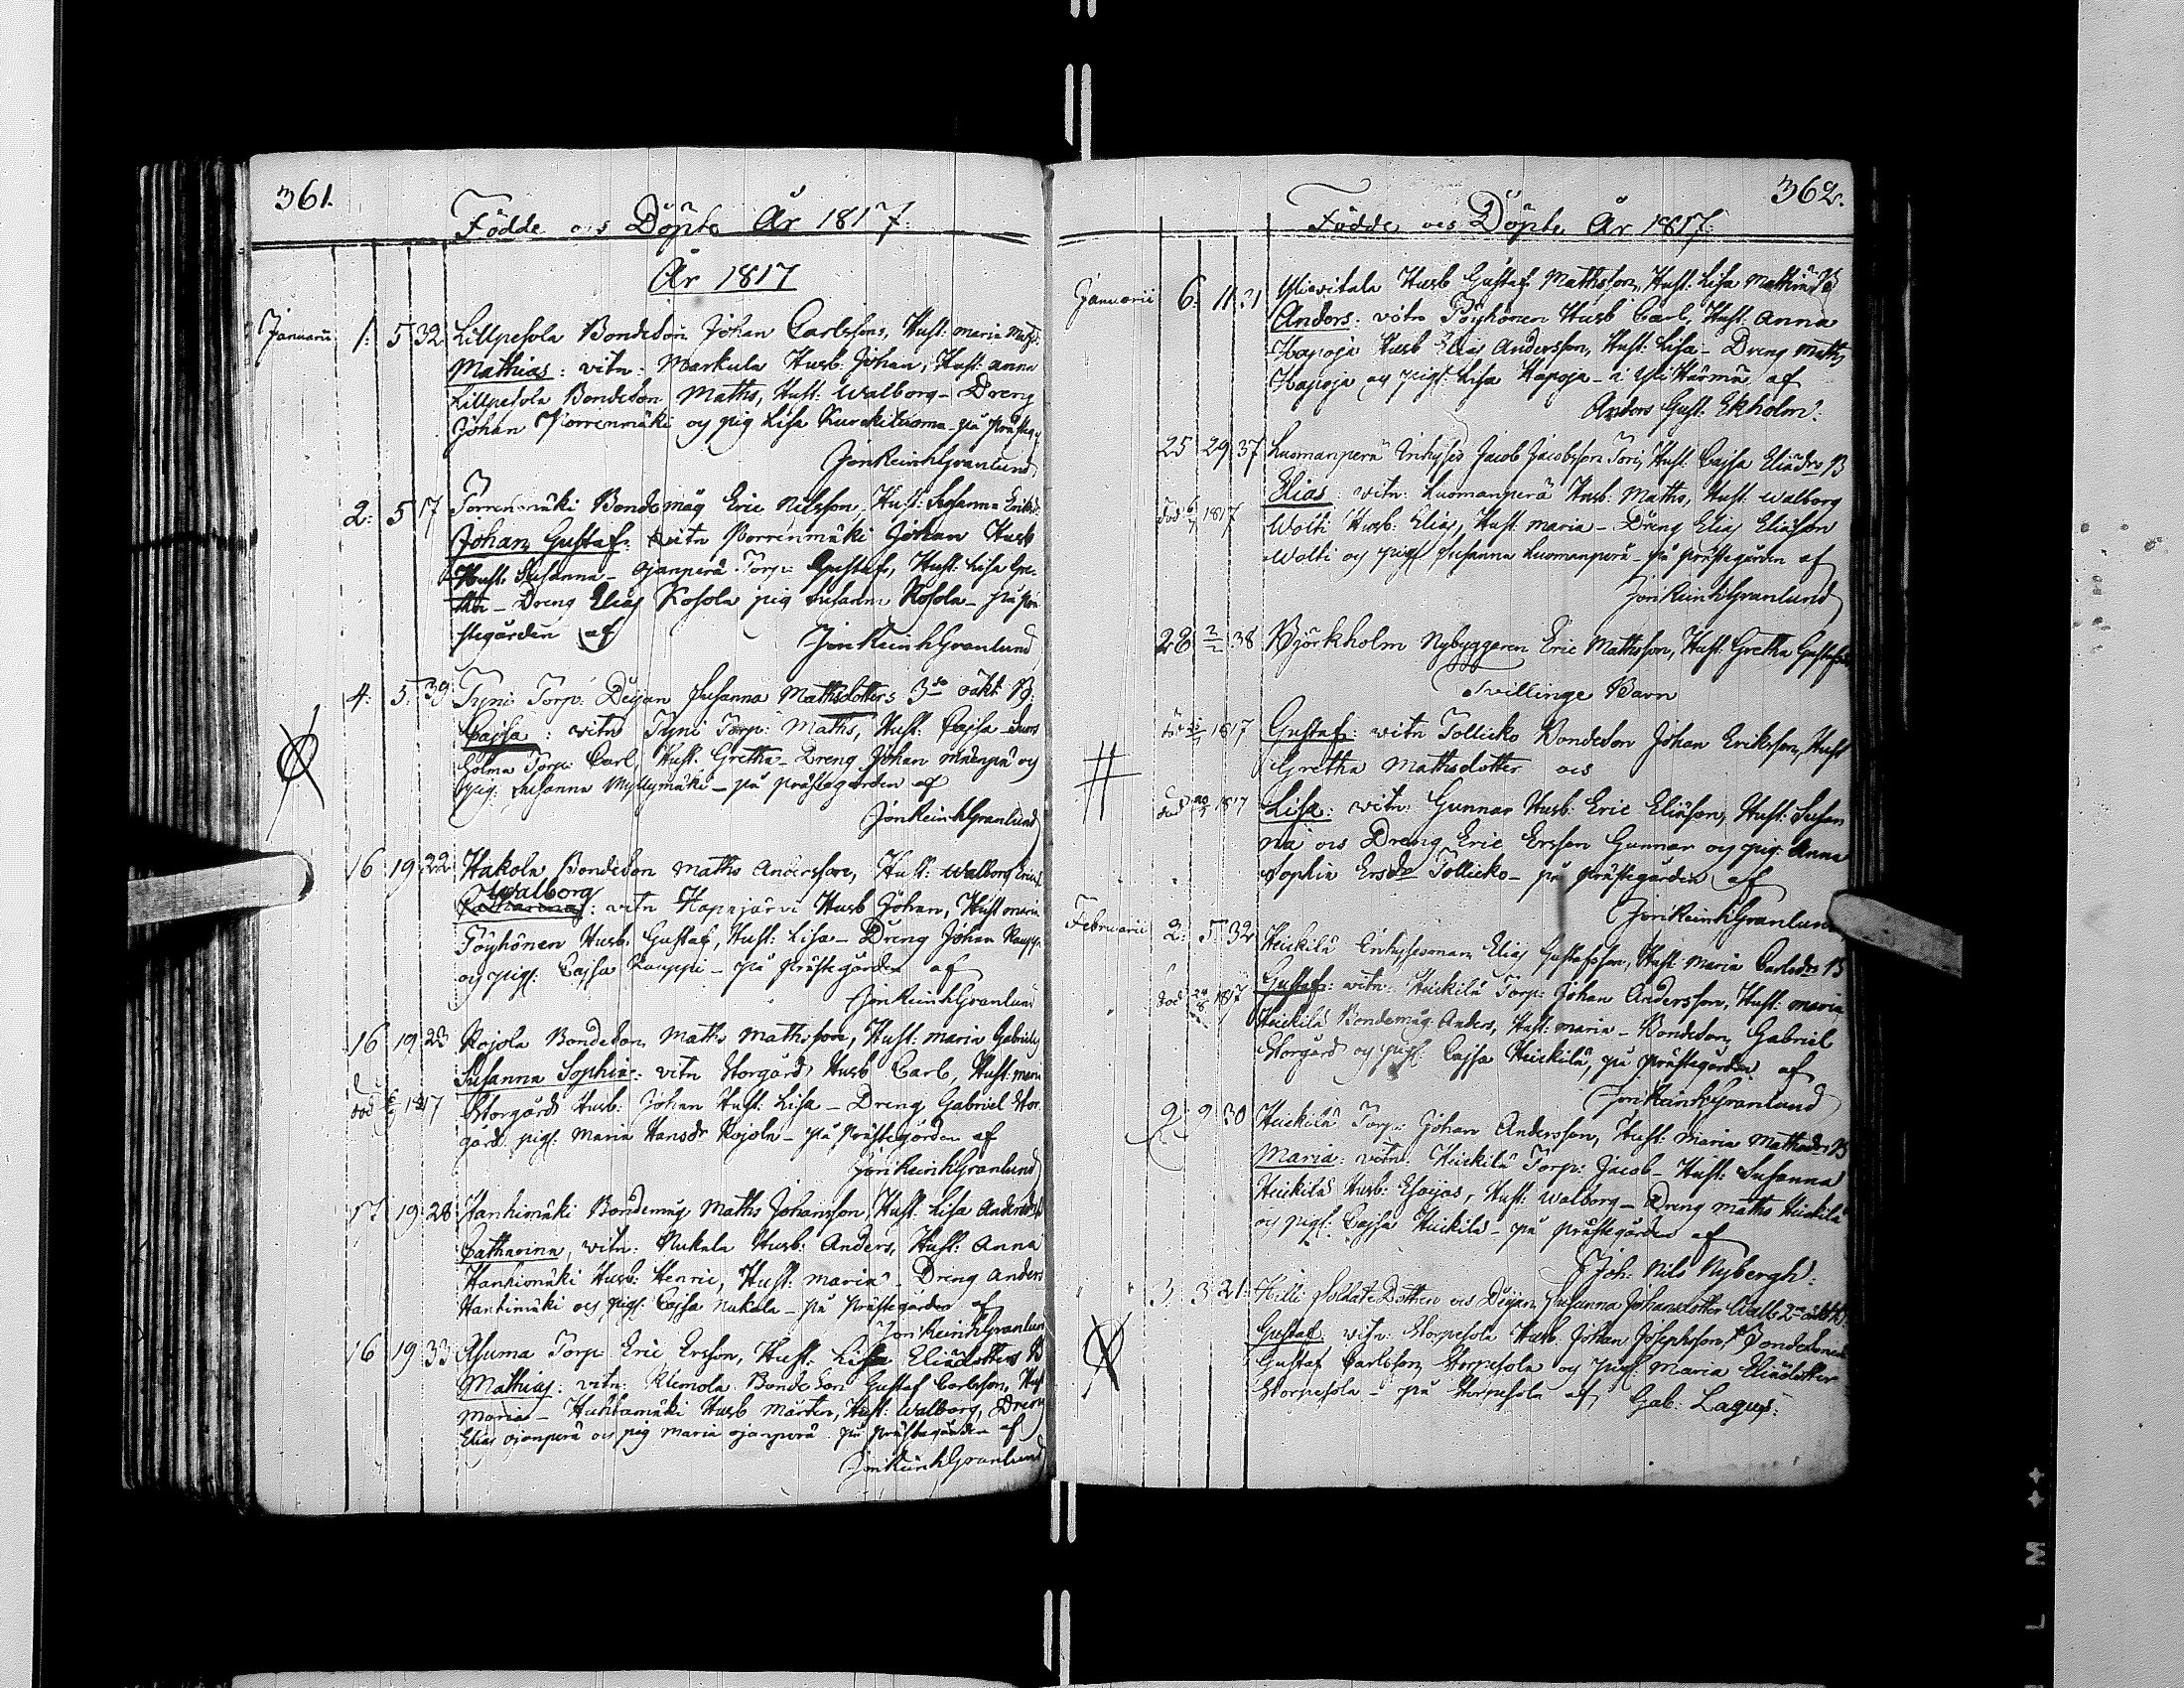 361.
Födde och Döpte År 1817.
År 1817
Januarii 1: 5 32 Lillpesola Bondeson Johan Carlssons, Hust: Maria
Mathias: vitn: Markula Husb: Johan, Hust: Anna
Lillpesola Bondeson Maths, Hust: Walborg - Dreng
Johan Porrenmäki och pig Lisa Kurckiluoma - på
Jon Reinh Granlund
2: 5 17 Porrenmäki Bondemåg Eric Nilsson, Hust: Susanna
Johan Gustaf: vitn Porrenmäki Johan Husb
Hust. Susanna - Ojanperä Torp: Gustaf, Hust: Lisa
- Dreng Elias Kosola pig Susanna Kosola - på prä-
stegården af Jon Reinh Granlund
4: 5: 39 Tyni Torp: Deyan Susanna Mathsdotters 3:dje oäkt B:
Cajsa: vitn Tyni Torp: Maths, Hust: Cajsa -
Torp: Carl, Hust. Gretha - Dreng Johan och
pig: Susanna Myllymäki - på prästegården af
Jon Reinh Granlund
16 19 22 Hakola Bondeson Maths Andersson, Hust: Walborg
Walborg
Catharina: vitn Haapajärvi Husb Johan, Hust Maria
Pöyhönen Husb. Gustaf, Hust: Lisa - Dreng Johan
och pig: Cajsa Kauppi - på prästegården af
Jon Reinh Granlund
16 19 23 Kojola Bondeson Maths Mathsson, Hust: Maria Gabriels
Susanna Sophia: vitn Storgård Husb Carl, Hust: Maria
död 1817 Storgård Husb: Johan Hust: Lisa - Dreng Gabriel Stor
gård pig: Maria Hansdr Kojola - på prästegården af
Jon Reinh Granlund
17 19 28 Hanhimäki Bondemåg Maths Johansson, Hust: Lisa
Catharina, vitn: Nukala Husb: Anders, Hust: Anna
Hanhimäki Husb: Henric, Hust: Maria - Dreng Anders
Hanhimäki och pig: Cajsa Nukala - på prästegården af
Jon Reinh Granlund
16 19 33 Torp Eric Ersson, Hust: Lisa Eliædotters B
Mathias: vitn: Klemola Bondeson Gustaf Carlsson, Hust
Maria - Huhtamäki Husb Mårten, Hust: Walborg, Dreng
Elias Ojanperä och pig Maria Ojanperä på prästegården af
Jon Reinh Granlund
362.
Födde och Döpte År 1817.
Januarii 6: 11 31 Husb Gustaf Mathsson, Hust: Lisa
Anders: vitn Pöyhönen Husb Carl, Hust: Anna
Haapoja Husb Elias Andersson, Hust: Lisa - Dreng Maths
Haapoja och pig: Lisa Haapoja - i Yli Härmä af
Anders Gust. Ekholm:
25 29 37 Luomanperä Inhyses Jacob Jacobsson Hust: Cajsa Eliædrs B
Elias: vitn: Luomanperä Husb: Maths, Hust: Walborg
död 6/7 1817 Wolti Husb: Elias, Hust: Maria - Dreng Elias Eliasson
Wolti och pig: Susanna Luomanperä - på prästegården af
Jon Reinh Granlund
28 2/2 38 Björkholm Nybyggaren Eric Mathsson, Hust: Gretha
Tvillinge Barn
1817 Gustaf: vitn Tollicko Bondeson Johan Eriksson, Hust
Gretha Mathsdotter och
död 1817 Lisa: vitn: Gunnar Husb: Eric Eliæson, Hust: Susan
na och Dreng Eric Ersson Gunnar och pig: Anna
Sophia Ersdr Tollicko - på prästegården af
Jon Reinh Granlund
Februarii 2: 5: 32 Heickilä Inhysesman Elias Gustafsson, Hust: Maria Carlsdrs B
Gustaf: vitn: Heickilä Torp: Johan Andersson, Hust: Maria
död 1817 Heickilä Bondemåg Anders, Hust: Maria - Bondeson Gabriel
Storgård och pig: Cajsa Heickilä, på prästegården af
Jon Reinh Granlund
2: 9 30 Heickilä Torp: Johan Andersson, Hust: Maria Mathsdrs B
Maria: vitn: Heickilä Torp: Jacob - Hust: Susanna
Heickilä Husb: Esaias, Hust: Walborg - Dreng Maths Heickilä
och pig: Cajsa Heickilä - på prästegården af
Joh: Nils Nybergh:
3: 3 21 Hilli Soldate Dottren och Deyan Susanna Johansdotter
Gustaf: vitn: Storpesola Husb. Johan Josephsson, Bondesonen
Gustaf Carlsson Storpesola och pig: Maria Eliædotter
Storpesola - på Storpesola af Gab: Lagus: